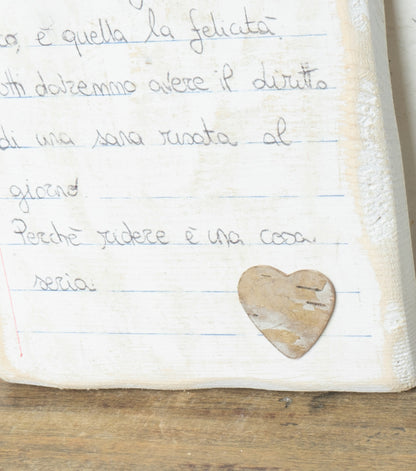 è quella la felicità.
dovremmo avere il diritto
di una sana risata al
giorno.
Perchè ridere è una cosa
seria.